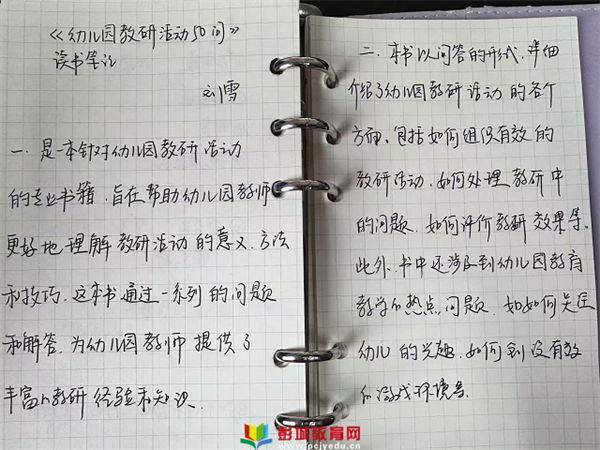 《幼儿园教研活动50问》
读书笔记
刘雪
一、是一本针对幼儿园教研活动
的专业书籍，旨在帮助幼儿园教师
更好地理解教研活动的意义、方法
和技巧。这本书通过一系列的问题
和解答，为幼儿园教师提供了
丰富的教研经验和知识。
二、本书以问答的形式，详细
介绍了幼儿园教研活动的各个
方面，包括如何组织有效的
教研活动，如何处理教研中
的问题，如何评价教研效果等。
此外，书中还涉及到幼儿园教育
教学的热点问题，如如何关注
幼儿的兴趣，如何创设有效
的游戏环境等。
彭城教育网
www.pcjyedu.cn